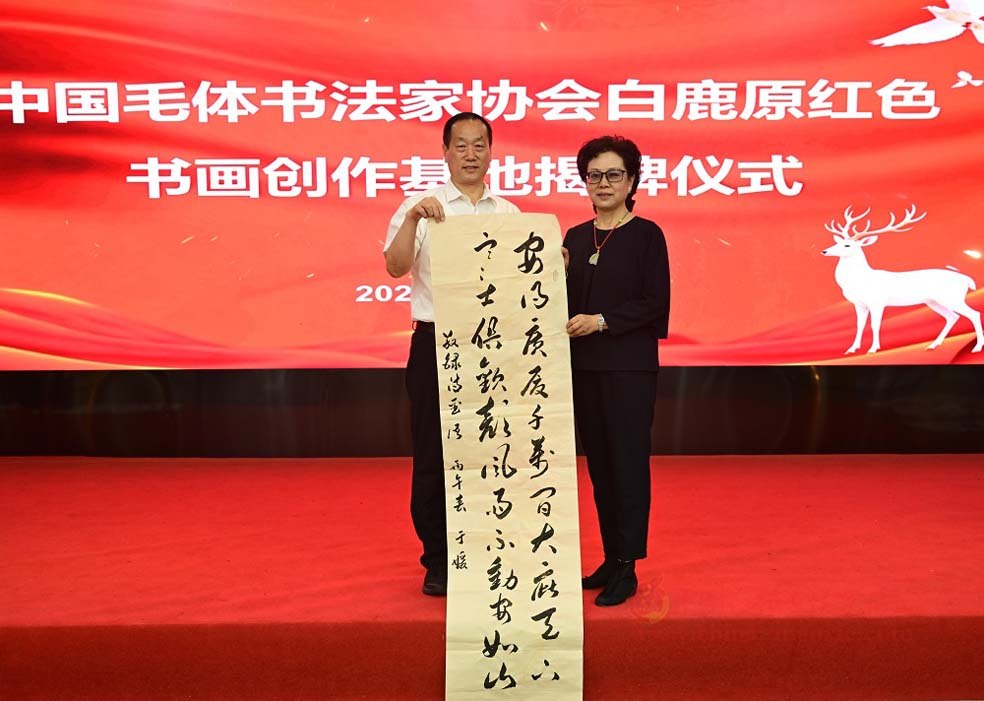 中国毛体书法家协会白鹿原红色
书画创作基地揭牌仪式
202
安得廣厦千萬間大庇天下
寒士俱歡顏風雨不動安如山
敬録诗圣语 丙午春 于媛